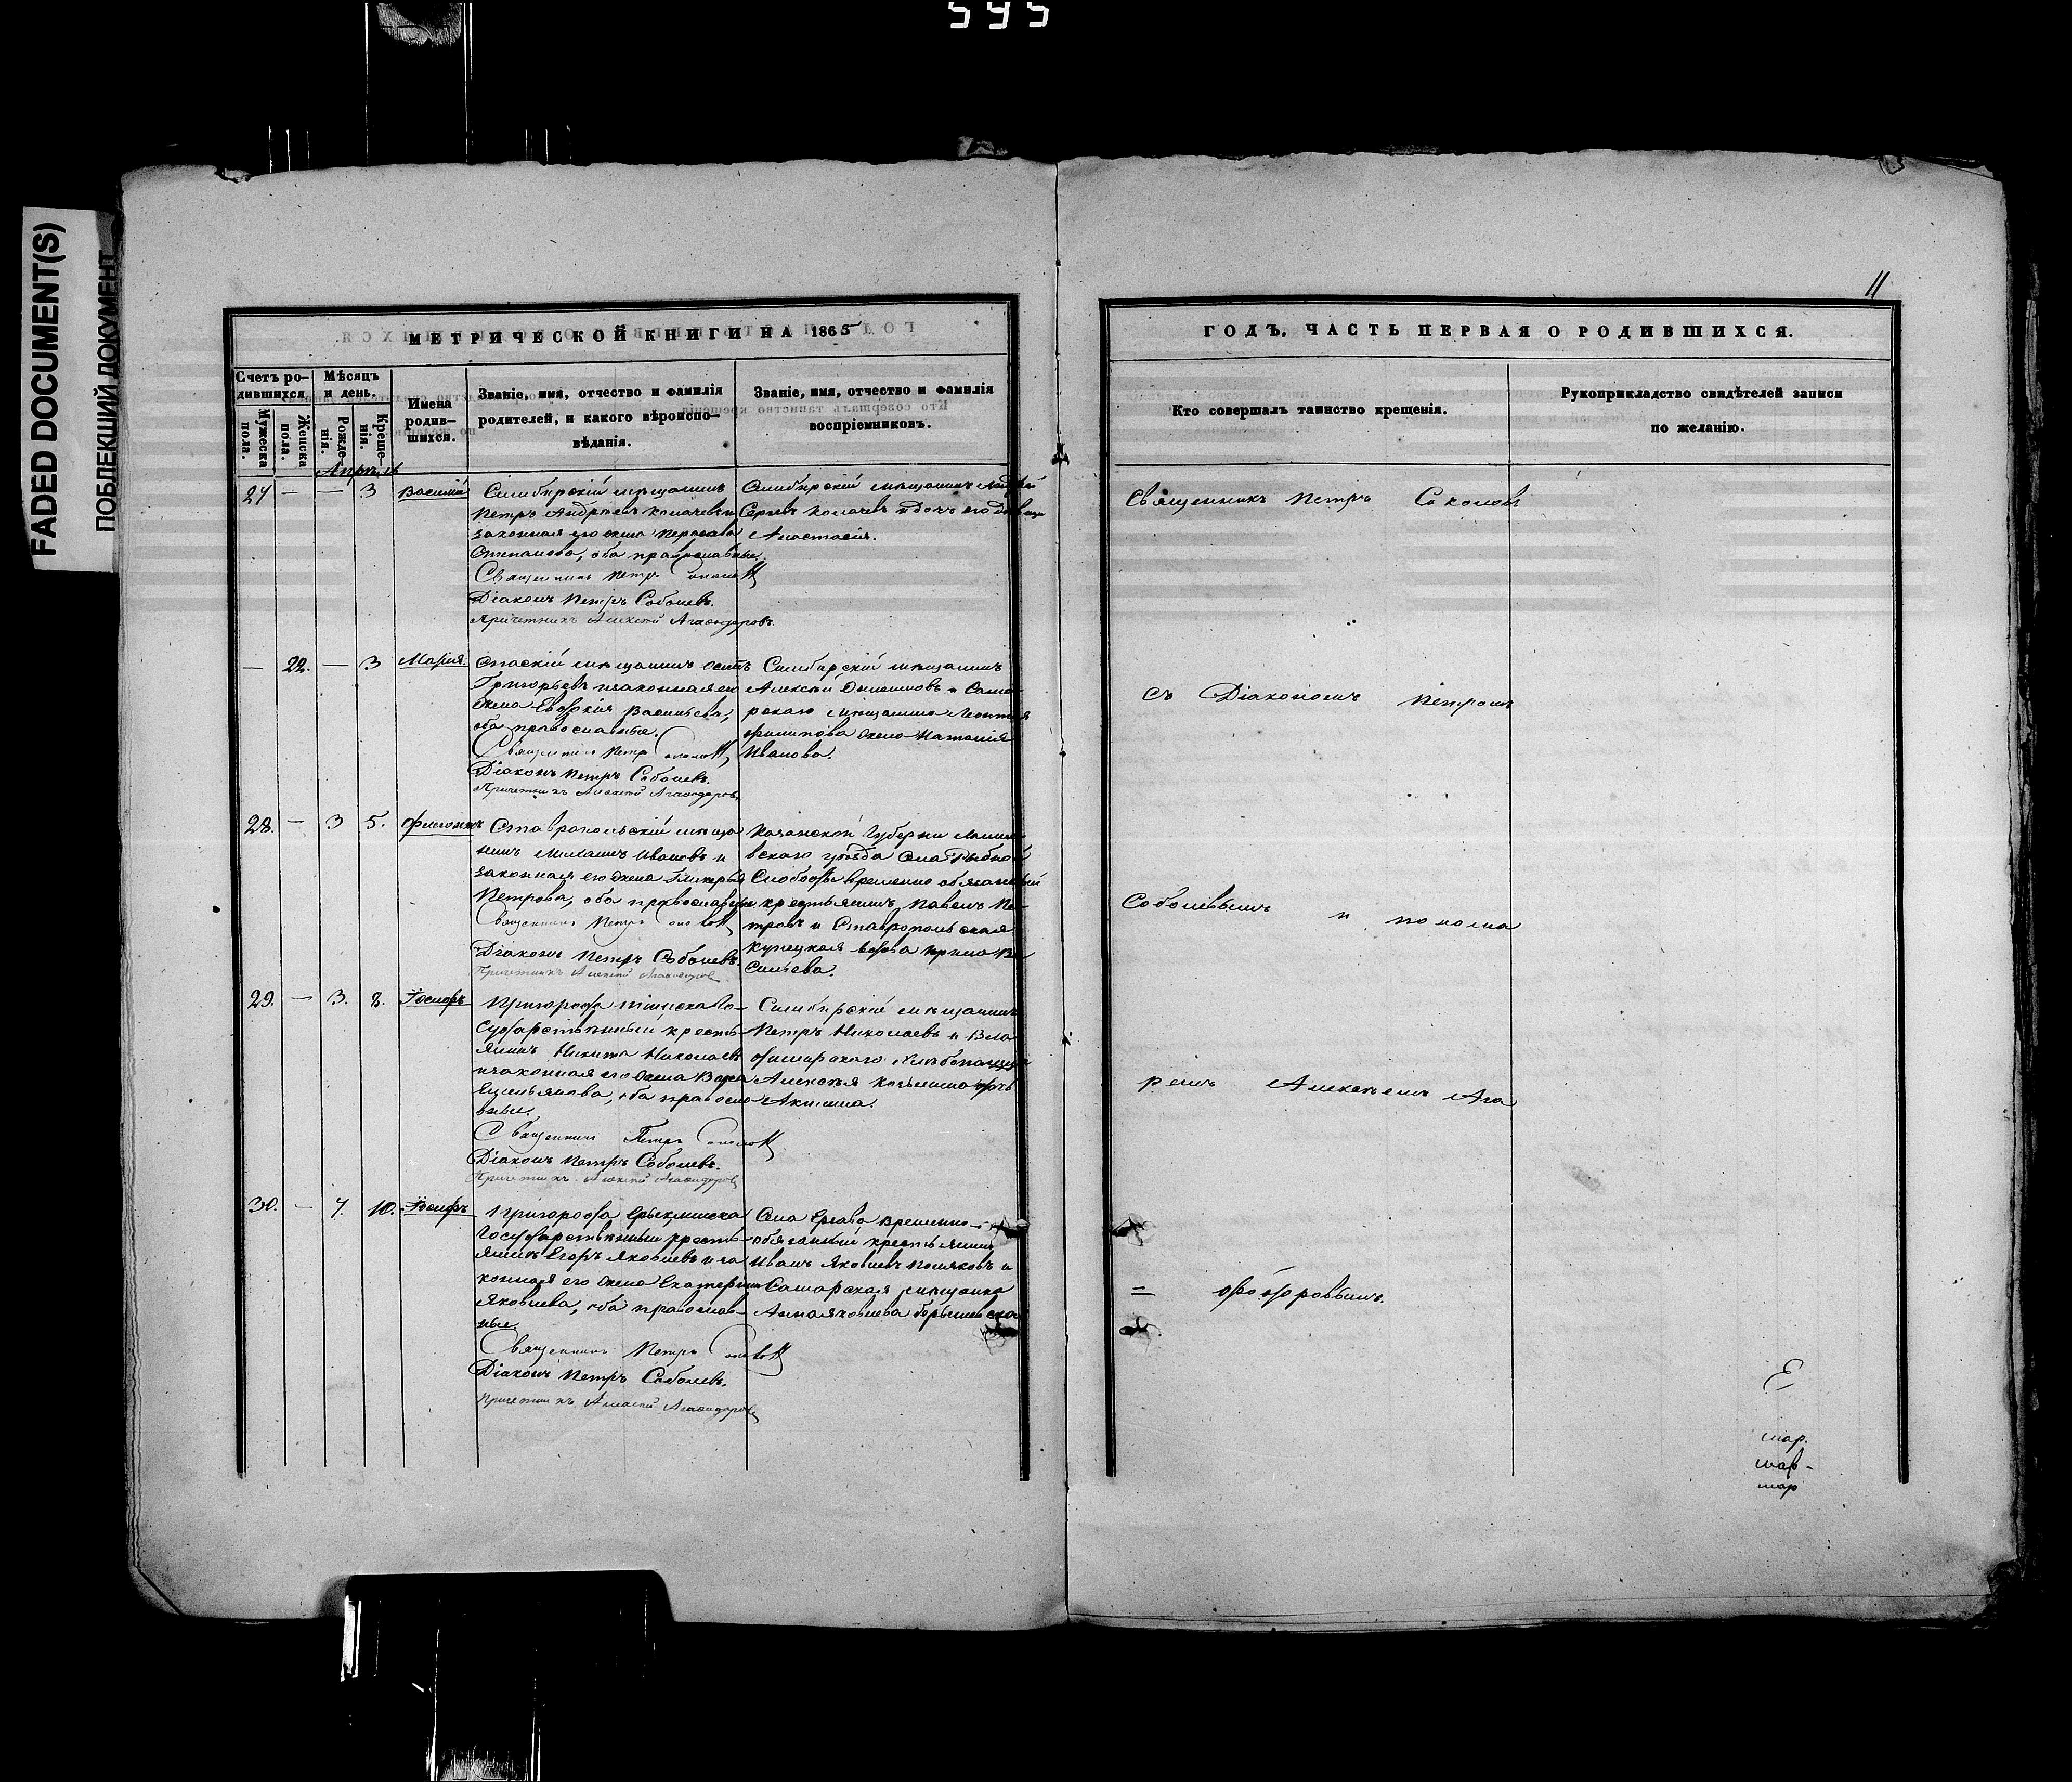 595
FADED DOCUMENT(S)
ПОБЛЕКЩИЙ ДОКУМЕНТ
МЕТРИЧЕСКОЙ КНИГИ НА 1865
Счетъ ро-
дившихся
Мужеска пола.
Женска пола.
Мѣсяцъ
и день.
Рожде-
нія.
Креще-
нія.
Имена
родив-
шихся.
Званіе, имя, отчество и фамилія
родителей, и какого вѣроиспо-
вѣданія.
Званіе, имя, отчество и фамилія
воспріемниковъ.
Апрѣль
27 — — 3 Василій
Симбирскій мѣщанинъ
Петръ Андреевъ Колачевъ и
законная его жена Параскева
Степанова, оба православные.
Священникъ Петръ Соколовъ
Діаконъ Петръ Соболевъ.
Причетникъ Алексѣй Агаѳодоровъ.
Симбирскій мѣщанинъ Андрей
Сергѣевъ Колачевъ и дочь его девица
Анастасія.
— 22. — 3 Марія.
Спаскій мѣщанинъ Осипъ
Григорьевъ и законная его
жена Евдокия Васильева,
оба православные.
Священникъ Петръ Соколовъ
Діаконъ Петръ Соболевъ.
Причетникъ Алексѣй Агаѳодоровъ
Симбирскій мѣщанинъ
Алексѣй и Сама-
рскаго мѣщанина Леонтия
Филипова жена Наталия
Иванова.
28. — 3 5.
Ставропольскій мѣща-
нинъ Михаилъ Ивановъ и
законная его жена Гликерья
Петрова, оба православны
Священникъ Петръ Соколовъ
Діаконъ Петръ Соболевъ.
Причетникъ Алексѣй Агаѳодоровъ
Казанской Губерни Лаише-
вскаго уѣзда Села Рыбной
Слободы временно обязанный
крестьянинъ Павелъ Пе-
тровъ и Ставропольская
купецкая вдова Ирина Ва-
сильева.
29. — 3. 8. Іосифъ
Пригорода Тіинска Го-
сударственный кресть-
янинъ Никита Николаевъ
и законная его жена Вера
Емельянова, оба правосла-
вные.
Священникъ Петръ Соколовъ
Діаконъ Петръ Соболевъ.
Причетникъ Алексѣй Агаѳодоровъ
Симбирскій мѣщанинъ
Петръ Николаевъ и Вла-
димирскаго хлѣбопашца
Алексѣя дочь
Акилина.
30. — 7. 10. Іосифъ
Пригорода Ерыклинска
Государственный кресть-
янинъ Егоръ Яковлевъ и за-
конная его жена Екатерина
Яковлева, оба православ-
ные.
Священникъ Петръ Соколовъ
Діаконъ Петръ Соболевъ.
Причетникъ Алексѣй Агаѳодоровъ
Села временно-
обязанный крестьянинъ
Иванъ Яковлевъ Поляковъ и
Самарская мѣщанка
Анна Яковлева
11
ГОДЪ, ЧАСТЬ ПЕРВАЯ О РОДИВШИХСЯ.
Кто совершалъ таинство крещенія.
Рукоприкладство свидѣтелей записи
по желанію.
Священникъ Петръ Соколовъ
съ Діакономъ Петромъ
Соболевымъ и понома
ремъ Алексѣемъ Ага
= ѳодоровымъ.